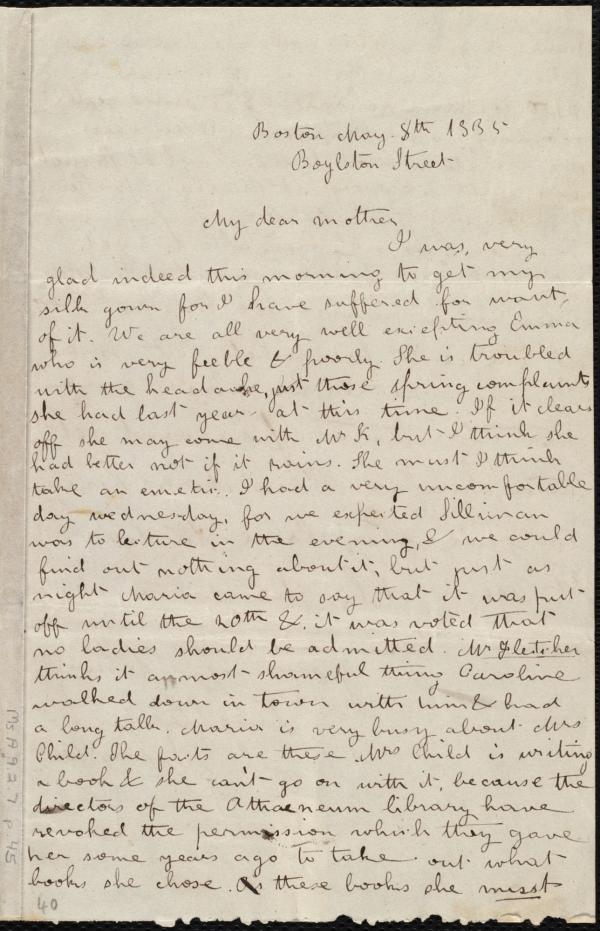 Boston May. 8th 1835
Boylston Street
My dear mother
I was, very
glad indeed this morning to get my
silk gown for I have suffered for want
of it. We are all very well excepting Emma
who is very feeble & poorly. She is troubled
with the headache, just those spring complaints
she had last year at this time. If it clears
off she may come with Mr K, but I think she
had better not if it rains. She must I think
take an emetic. I had a very uncomfortable
day wednesday, for we expected Silliman
was to lecture in the evening, & we could
find out nothing about it, but just as
night Maria came to say that it was put
off until the 20th &. it was voted that
no ladies should be admitted. Mr Fletcher
thinks it a most shameful thing Caroline
walked down in town with him & had
a long talk. Maria is very busy about Mrs
Child. The facts are these Mrs Child is writing
a book & she can't go on with it, because the
directors of the Athaeneum library have
revoked the permission which they gave
her some years ago to take out what
books she chose. As these books she must
Ms A 9 2 7 p 45
40